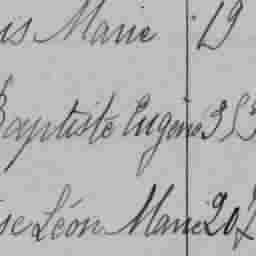 is Marie 19
Baptiste Eugène 353
se Léon Marie 207